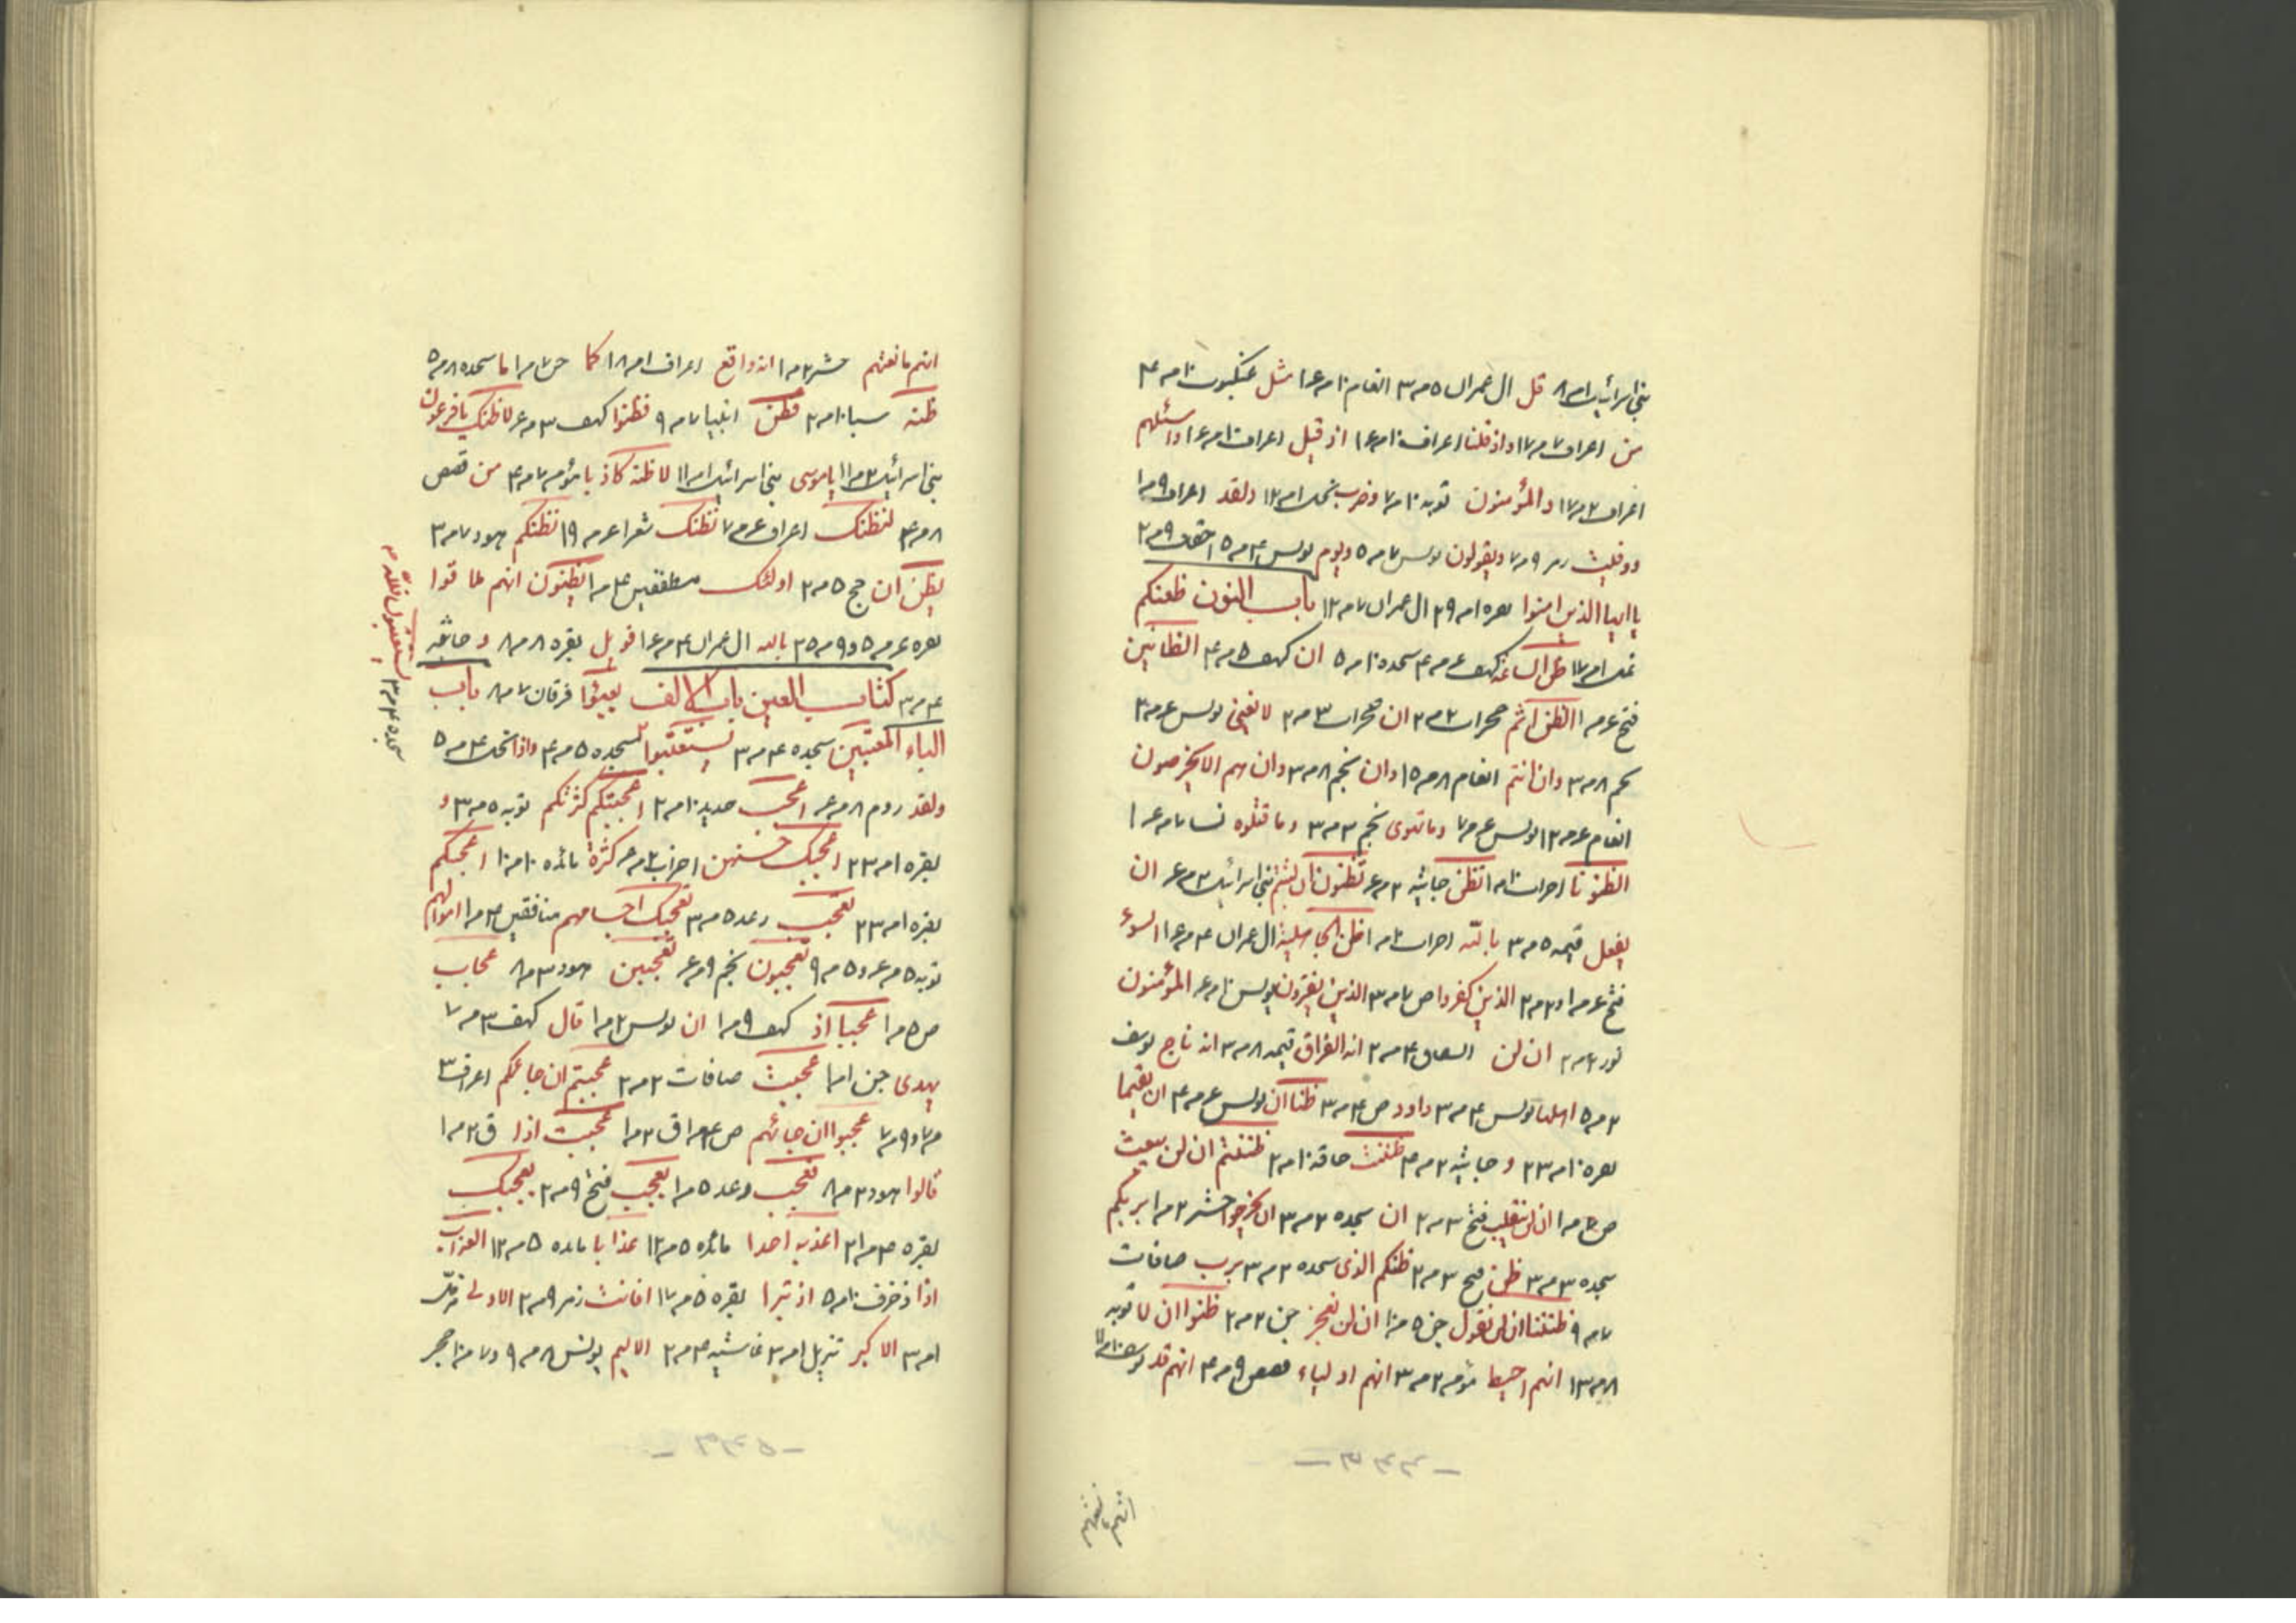 بنی اسرائیل ۱م۸ قل ال عمران ۵م۳ انعام ۱۰م۱۶ مثل عنکبوت ۱۰م۴
من اعراف ۷م۱۷ واذ قلنا اعراف ۱۰م۱۶ اذ قیل اعراف ۱۰م۱۶ واسئلهم
اعراف ۲م۱۷ والمؤمنون توبه ۱۰م۷ وضرب نحل ۱م۱۲ ولقد اعراف ۹م۱
ووفیت زمر ۹م۷ ویقولون یونس ۷م۵ ویوم یونس ۴م۵ احقاف ۹م۲
یا ایها الذین امنوا بقره ۱م۲۹ ال عمران ۷م۱۲ باب النون ظعنکم
نحل ۱م۱۷ ظن الساعة کهف ۶م۴ سجده ۱۰م۵ ان کهف ۵م۴ الظانین
فتح ۶م۱ الظن اثم حجرات ۲م۲ ان حجرات ۳م۲ لا یغنی یونس ۶م۳
نجم ۸م۳ وان انتم انعام ۸م۱۵ وان نجم ۸م۳ وان هم الا یخرصون
انعام ۶م۱۲ یونس ۶م۷ وما تهوی نجم ۳م۳ وما قتلوه نسا ۷م۱۶
الظنونا احزاب ۱۰م۱ تظن جاثیه ۳م۶ تظنون ان لبثتم بنی اسرائیل ۳م۶ ان
یفعل قیمه ۵م۳ بالله احزاب ۲م۱ ظن الجاهلیة ال عمران ۴م۱۶ السوء
فتح ۶م۱ و۲م۲ الذین کفروا ص ۷م۳ الذین یفترون یونس ۱۰م۶ المؤمنون
نور ۲م۲ ان لن انشقاق ۴م۲ انه الفراق قیمه ۸م۳ انه ناج یوسف
۲م۵ اهلها یونس ۴م۳ داود ص ۴م۳ ظنا ان یونس ۶م۴ ان یقیما
بقره ۱۰م۲۳ و جاثیه ۲م۴ ظننت حاقه ۱۰م۲ ظننتم ان لن یبعث
ص ۴م۱ ان لن ینقلب فتح ۳م۲ ان سجده ۲م۳ ان یخرجوا حشر ۲م۱ بربکم
سجده ۳م۳ ظن فتح ۳م۲ ظنکم الذی سجده ۲م۳ برب صافات
۷م۹ ظننا ان لن نقول جن ۵م۱۰ ان لن نعجز جن ۲م۲ ظنوا ان لا توبه
۸م۱۳ انهم احیط مؤمن ۲م۳ انهم اولیاء قصص ۹م۴ انهم قد یوسف ۱۰م۱۱
انهم مانعتهم
انهم مانعتهم حشر ۲م۱ انه واقع اعراف ۱م۱۸ کما جن ۷م۱ ما سجده ۸م۵
ظنه سبا ۱۰م۲ فظن انبیا ۷م۹ فظنوا کهف ۳م۶ لاظنک یا فرعون
بنی اسرائیل ۲م۱۱ یا موسی بنی اسرائیل ۱م۱۱ لاظنه کاذبا مؤمن ۷م۴ من قصص
۸م۴ لنظنک اعراف ۶م۷ نظنک شعرا ۶م۱۹ نظنکم هود ۷م۳
یظن ان حج ۵م۲ اولئک مطففین ۴م۱ یظنون انهم ملاقوا
بقره ۶م۵ و۹م۲۵ بالله ال عمران ۴م۱۶ فویل بقره ۸م۸ و جاثیه
۴م۳ کتاب العین باب الالف یعبؤا فرقان ۷م۸ باب
الباء المعتبین سجده ۴م۳ یستعتبوا سجده ۵م۴ واذا نحل ۴م۵
ولقد روم ۸م۶ اعجب حدید ۱۰م۲ اعجبتکم کثرتکم توبه ۵م۳ و
بقره ۱م۲۳ اعجبک حسنهن احزاب ۲م۶ کثرة مائده ۱۰م۱۰ اعجبکم
بقره ۱م۲۳ تعجب رعد ۵م۳ تعجبک اجسامهم منافقین ۴م۱ اموالهم
توبه ۵م۶ و۵م۹ تعجبون نجم ۹م۶ تعجبین هود ۳م۸ عجاب
ص ۵م۱ عجبا اذ کهف ۹م۱ ان یونس ۲م۱ قال کهف ۳م۷
یهدی جن ۱م۱ عجبت صافات ۲م۲ عجبتم ان جاءکم اعراف ۳
م۷ و۹م۷ عجبوا ان جائهم ص ۴م۱ ق ۲م۱ عجیب اذا ق ۲م۱
قالوا هود ۳م۸ فعجب رعد ۵م۱ یعجب فتح ۹م۲ یعجبک
بقره ۴م۲۱ اعذبه احدا مائده ۵م۱۲ عذابا مائده ۵م۱۲ العذاب
اذا زخرف ۱۰م۵ اذ تبرا بقره ۵م۱۷ افانت زمر ۹م۲ الادنی
۱م۳ الاکبر تنزیل ۱م۳ غاشیه ۴م۲ الالیم یونس ۸م۹ و۷م۱۰ حجر
سجده ۴م۳